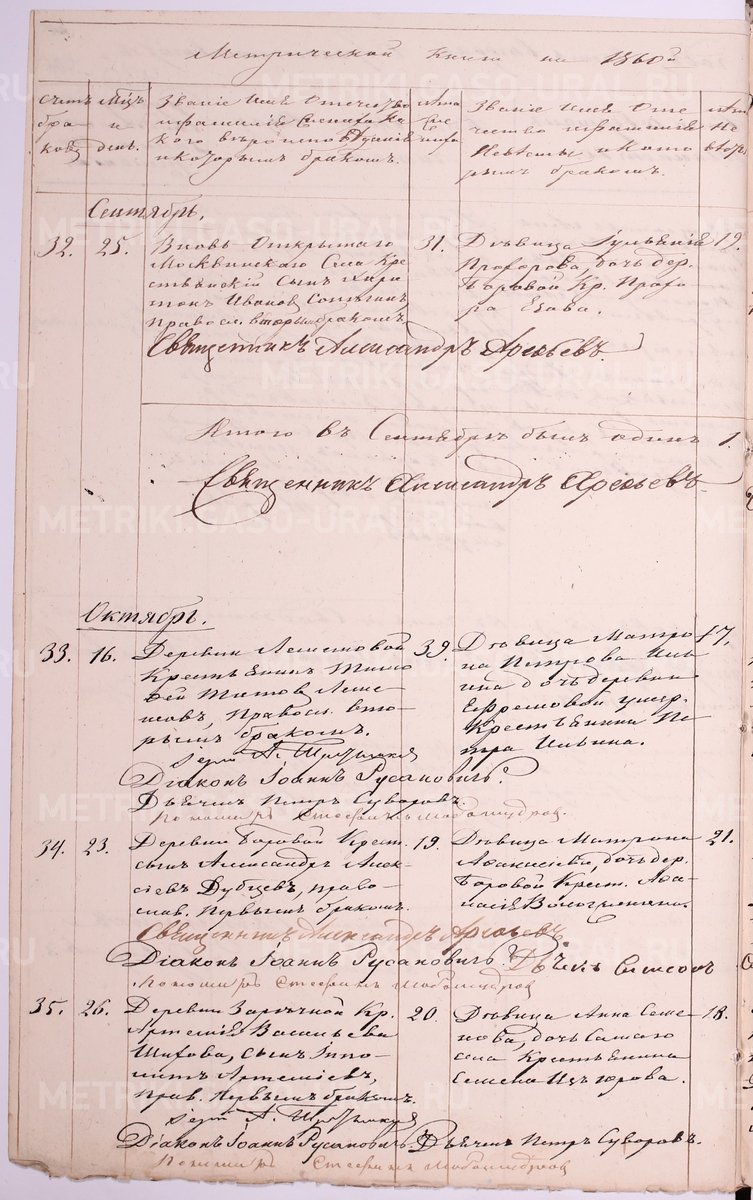 Метрической книги на 1860й
Счетъ
бра
ковъ
Мѣц
и
день.
Званіе Имя Отечество
и фамилія Жениха ка
кого вѣроисповѣданія
и которымъ бракомъ.
Лѣта
Же
ниха
Званіе Имя Оте
чество и фамилія
Невѣсты и кото
рымъ бракомъ.
Лѣта
Не
вѣсты
Сентябрь.
32. 25.
Вновь Открытаго
Москвинскаго Села Кре
стьянскій Сынъ Хари
тонъ Ивановъ
Правосл. вторымъ бракомъ
31.
Дѣвица Іуліанія
Прохорова, дочь дер.
Боровой Кр. Прохо
ра Езова.
19.
Священникъ Александръ Арефьевъ
Итого въ Сентябрѣ былъ одинъ 1.
Священникъ Александръ Арефьевъ
Октябрь.
33. 16.
Деревни Лепетовой
Крестьянинъ Тимо
фей Титовъ Лепе
товъ, Правосл. вто
рымъ бракомъ.
39.
Дѣвица Матро
на Петрова Ильи
на дочь деревни
Ефремовой умер.
Крестьянина Пе
тра Ильина.
17.
Іерей А.
Діаконъ Іоаннъ Русановичъ.
Дьячекъ Петръ Суворовъ.
Пономарь Стефанъ
34. 23.
Деревни Боровой Крест.
сынъ Александръ Алек
сіевъ Дубцевъ, право
слав. Первымъ бракомъ.
19.
Дѣвица Матрона
Аѳанасіева, дочь дер.
Боровой Крест. Аѳа
насія Вологженина.
21.
Священникъ Александръ Арефьевъ
Діаконъ Іоаннъ Русановичъ. Дьячекъ
Пономарь Стефанъ
35. 26.
Деревни Зарѣчной Кр.
Артемія Васильева
Шихова, сынъ Іппо
литъ Артеміевъ,
прав. Первымъ бракомъ.
20.
Дѣвица Анна Семе
нова, дочь Самаго
села Крестьянина
Семена
18.
Іерей А.
Діаконъ Іоаннъ Русановичъ. Дьячекъ Петръ Суворовъ.
Пономарь Стефанъ
METRIKI.GASO-URAL.RU